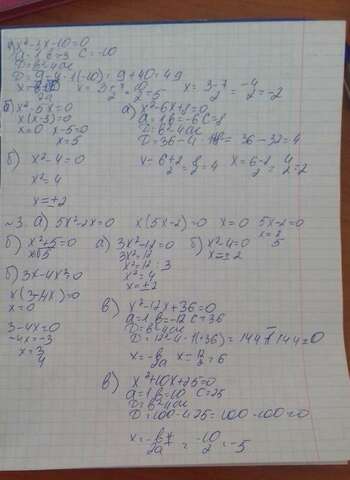 а) x²-3x-10=0
a=1 b=3 c=-10
D=b²-4ac
D=9-4·1(-10)=9+40=49
x=3+7/2=10/2=5 x=3-7/2=-4/2=-2
б) x²-5x=0
x(x-5)=0
x=0 x-5=0
x=5
а) x²-6x+8=0
a=1 b=-6 c=8
D=b²-4ac
D=36-4·1·8=36-32=4
x=6+2/2=8/2=4 x=6-2/2=4/2=2
б) x²-4=0
x²=4
x=±2
~3. а) 5x²-2x=0 x(5x-2)=0 x=0 5x-2=0
x=2/5
б) x²+5=0
x√5
а) 3x²-12=0
3x²=12
x²=12:3
x²=4
x=±2
б) x²-4=0
x=±2
б) 3x-4x²=0
x(3-4x)=0
x=0
3-4x=0
-4x=-3
x=3/4
в) x²-12x+36=0
a=1 b=-12 c=36
D=b²-4ac
D=12²-4·1(+36)=144-144=0
x=-b/2a x=12/2=6
в) x²+10x+25=0
a=1 b=10 c=25
D=b²-4ac
D=100-4·25=100-100=0
x=-b/2a=-10/2=-5